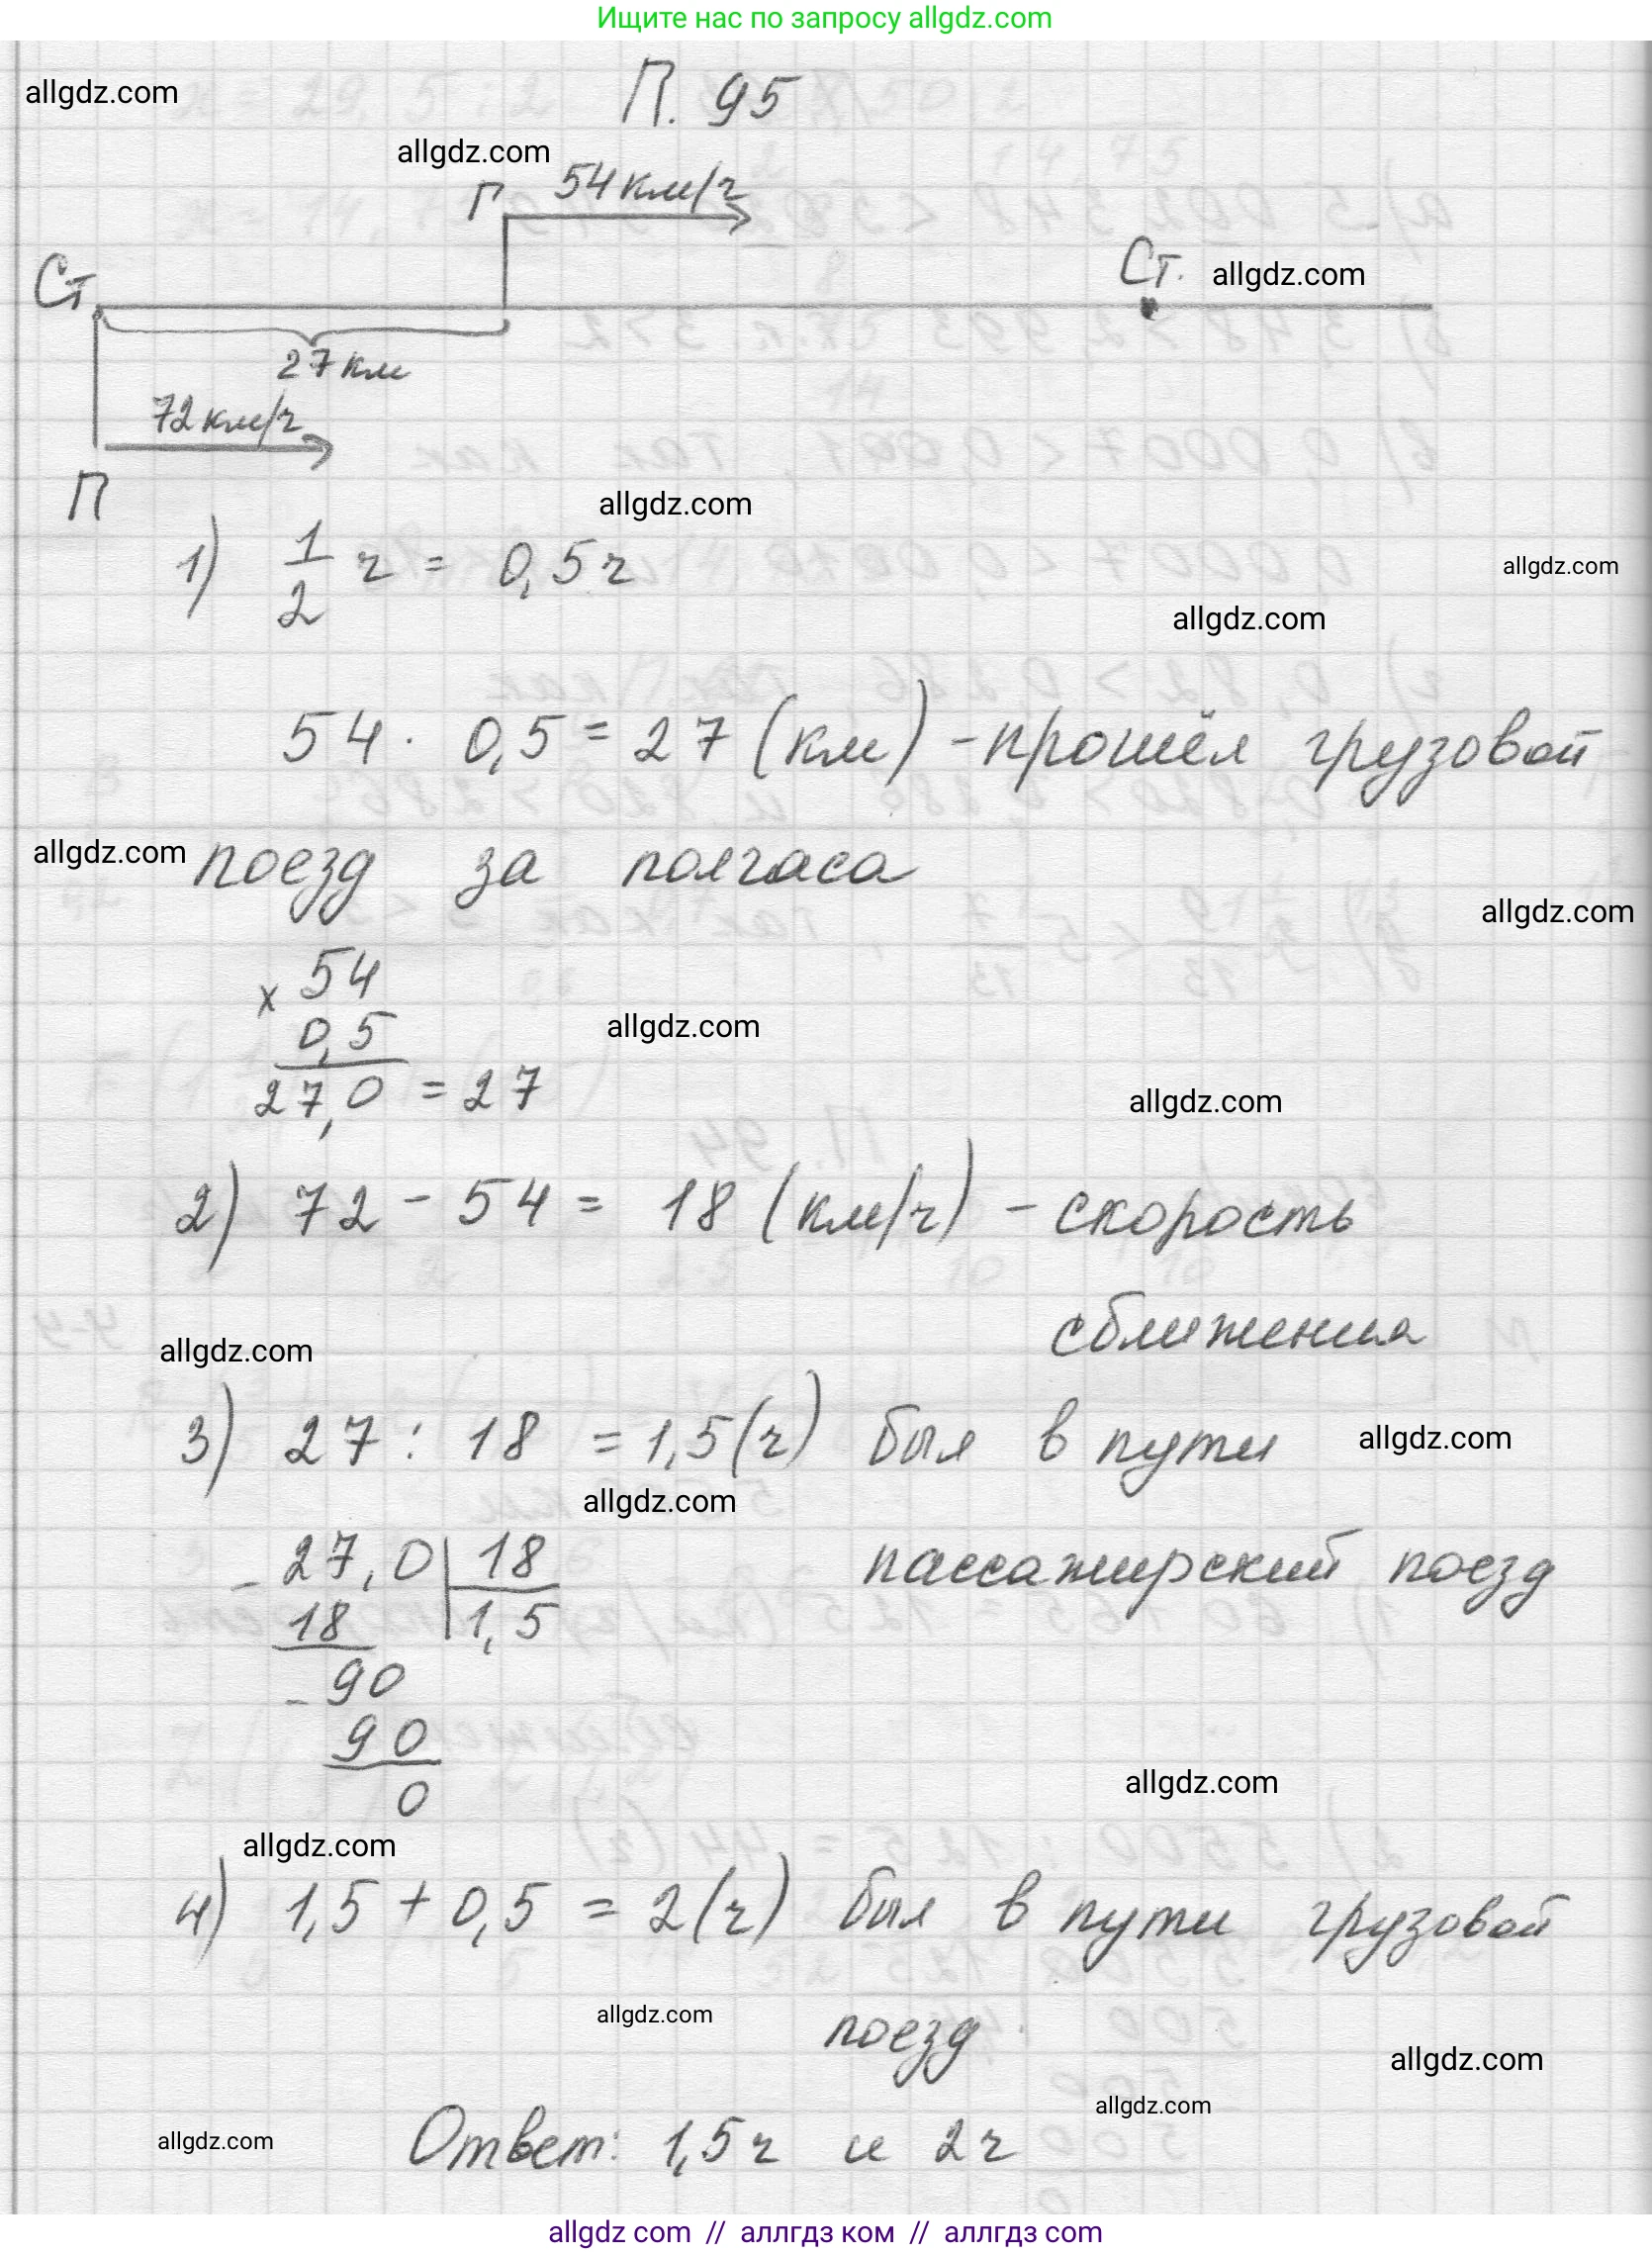 Ищите нас по запросу allgdz.com
allgdz.com
П. 95
allgdz.com
Г 54 км/ч
Ст. Ст. allgdz.com
27 км
72 км/ч
П
allgdz.com
1) 1/2 ч = 0,5 ч
allgdz.com
allgdz.com
54 · 0,5 = 27 (км) - прошёл грузовой
allgdz.com поезд за полчаса
allgdz.com
× 54
0,5
allgdz.com
27,0 = 27
allgdz.com
2) 72 - 54 = 18 (км/ч) - скорость
сближения
allgdz.com
3) 27 : 18 = 1,5 (ч) был в пути allgdz.com
allgdz.com
- 27,0 | 18 пассажирский поезд
18 1,5
- 90
90
0
allgdz.com
allgdz.com
4) 1,5 + 0,5 = 2 (ч) был в пути грузовой
allgdz.com поезд
allgdz.com
allgdz.com
allgdz.com Ответ: 1,5 ч и 2 ч
allgdz com // аллгдз ком // аллгдз com